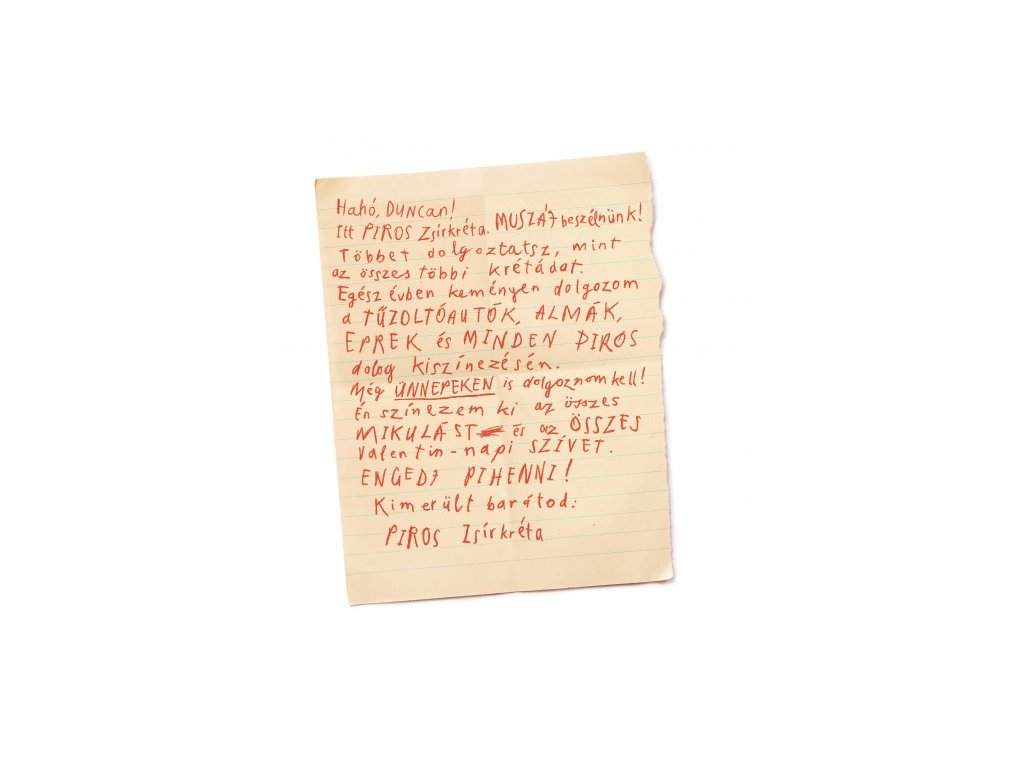 Hahó, DUNCan!
Itt PIROS Zsírkréta. MUSZÁJ beszélnünk!
Többet dolgoztatsz, mint
az összes többi krétádat.
Egész évben keményen dolgozom
a TŰZOLTÓAUTÓK, ALMÁK,
EPREK és MINDEN PIROS
dolog kiszínezésén.
Még ÜNNEPEKEN is dolgoznom kell!
Én színezem ki az összes
MIKULÁST és az ÖSSZES
Valentin-napi SZÍVET.
ENGEDJ PIHENNI!
Kimerült barátod:
PIROS Zsírkréta